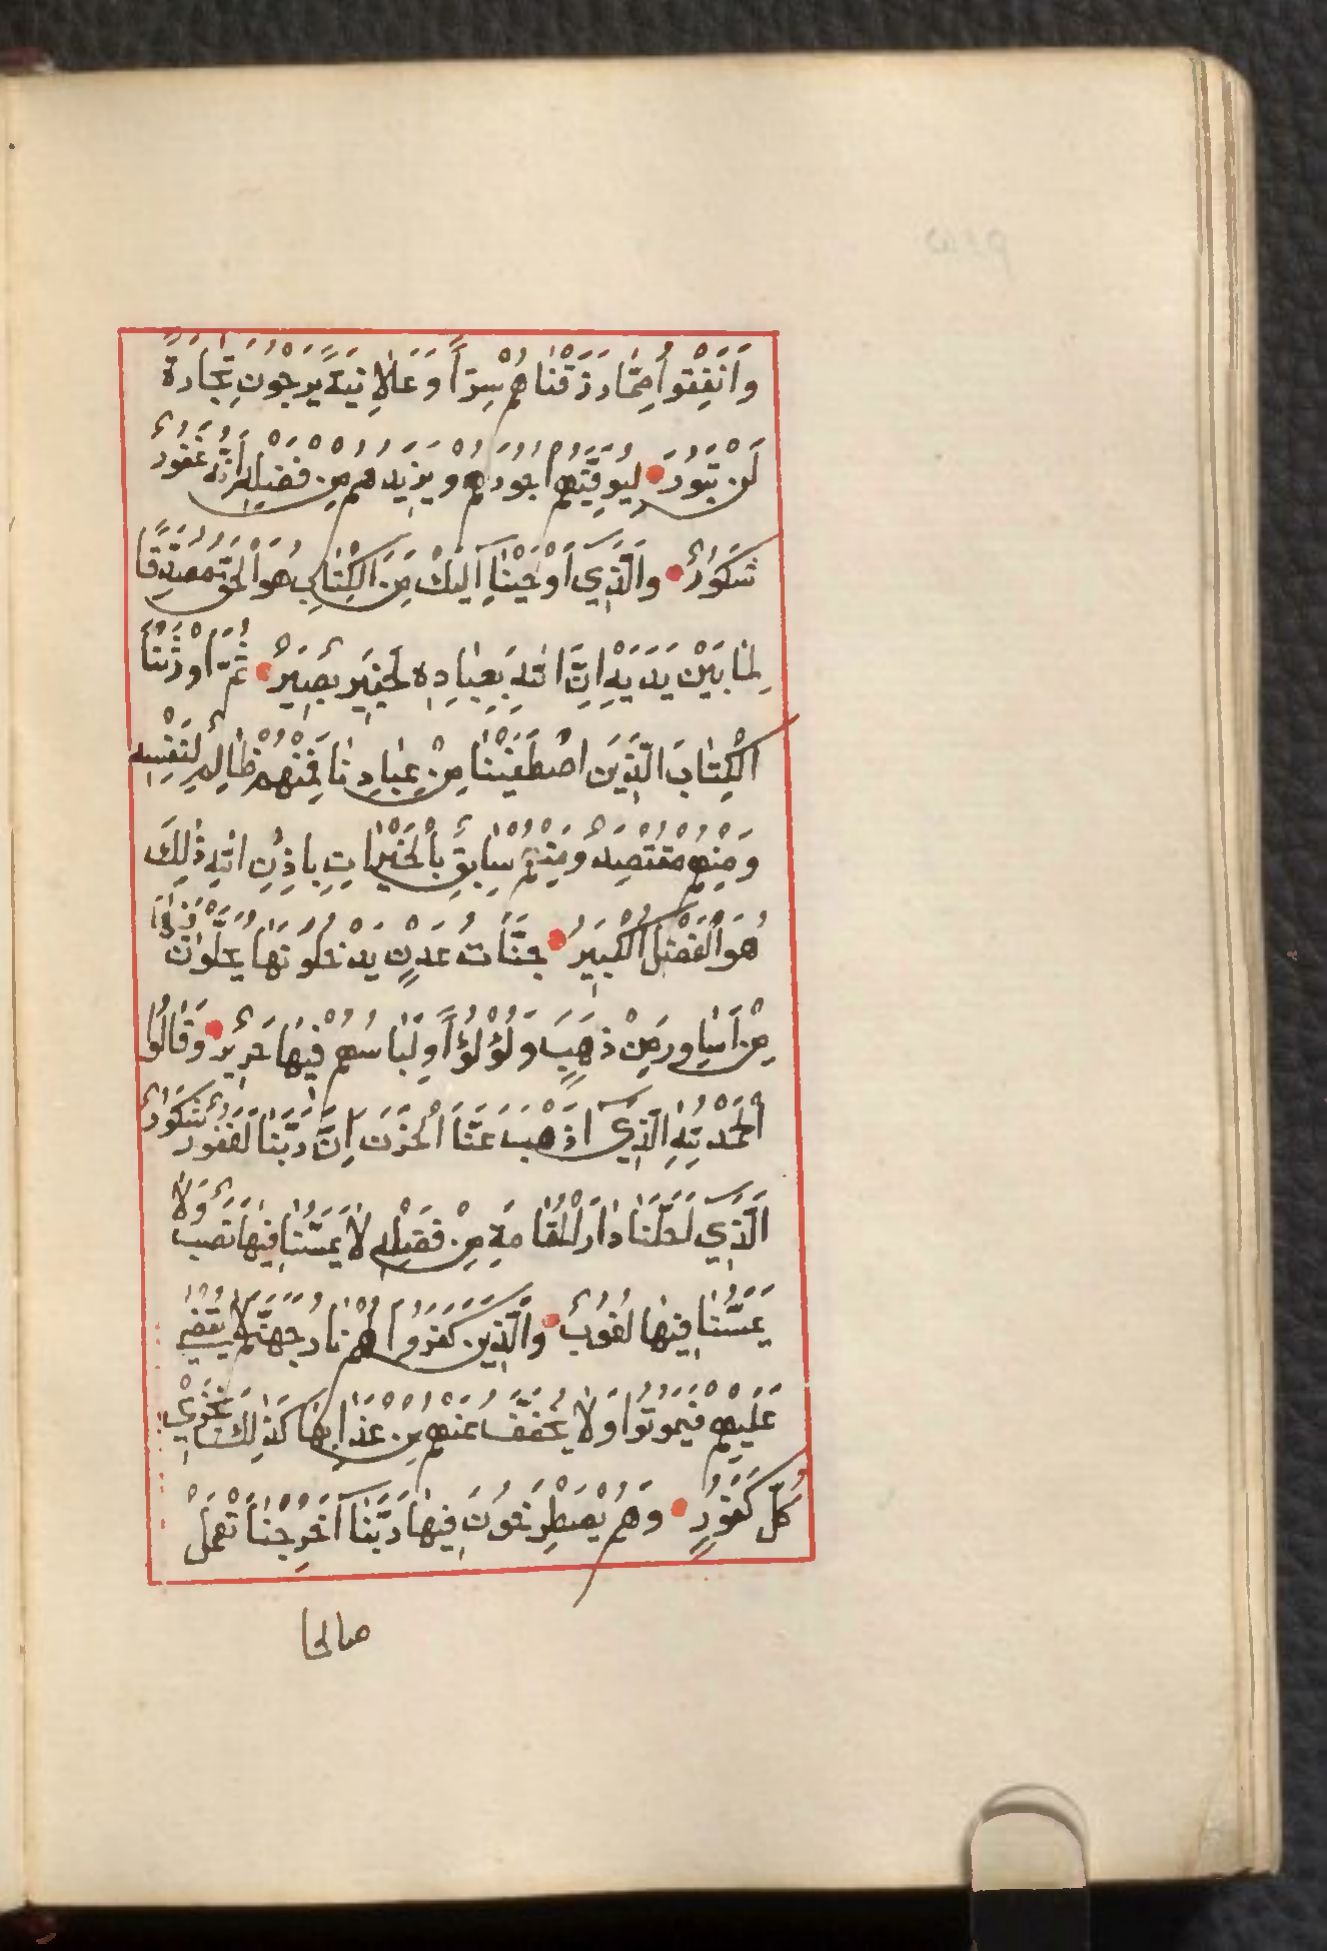 وَاَنْفَقُوا مِمَّا رَزَقْنَاهُمْ سِرّاً وَعَلَانِيَةً يَرْجُونَ تِجَارَةً
لَنْ تَبُورَ لِيُوَفِّيَهُمْ اُجُورَهُمْ وَيَزِيدَهُمْ مِنْ فَضْلِهِ اِنَّهُ غَفُورٌ
شَكُورٌ وَالَّذِي اَوْحَيْنَا اِلَيْكَ مِنَ الْكِتَابِ هُوَ الْحَقُّ مُصَدِّقًا
لِمَا بَيْنَ يَدَيْهِ اِنَّ اللّٰهَ بِعِبَادِهِ لَخَبِيرٌ بَصِيرٌ ثُمَّ اَوْرَثْنَا
الْكِتَابَ الَّذِينَ اصْطَفَيْنَا مِنْ عِبَادِنَا فَمِنْهُمْ ظَالِمٌ لِنَفْسِهِ
وَمِنْهُمْ مُقْتَصِدٌ وَمِنْهُمْ سَابِقٌ بِالْخَيْرَاتِ بِاِذْنِ اللّٰهِ ذٰلِكَ
هُوَ الْفَضْلُ الْكَبِيرُ جَنَّاتُ عَدْنٍ يَدْخُلُونَهَا يُحَلَّوْنَ فِيهَا
مِنْ اَسَاوِرَ مِنْ ذَهَبٍ وَلُؤْلُؤاً وَلِبَاسُهُمْ فِيهَا حَرِيرٌ وَقَالُوا
الْحَمْدُ لِلّٰهِ الَّذِي اَذْهَبَ عَنَّا الْحَزَنَ اِنَّ رَبَّنَا لَغَفُورٌ شَكُورٌ
الَّذِي اَحَلَّنَا دَارَ الْمُقَامَةِ مِنْ فَضْلِهِ لَا يَمَسُّنَا فِيهَا نَصَبٌ وَلَا
يَمَسُّنَا فِيهَا لُغُوبٌ وَالَّذِينَ كَفَرُوا لَهُمْ نَارُ جَهَنَّمَ لَا يُقْضٰى
عَلَيْهِمْ فَيَمُوتُوا وَلَا يُخَفَّفُ عَنْهُمْ مِنْ عَذَابِهَا كَذٰلِكَ نَجْزِي
كُلَّ كَفُورٍ وَهُمْ يَصْطَرِخُونَ فِيهَا رَبَّنَا اَخْرِجْنَا نَعْمَلْ
صالحا